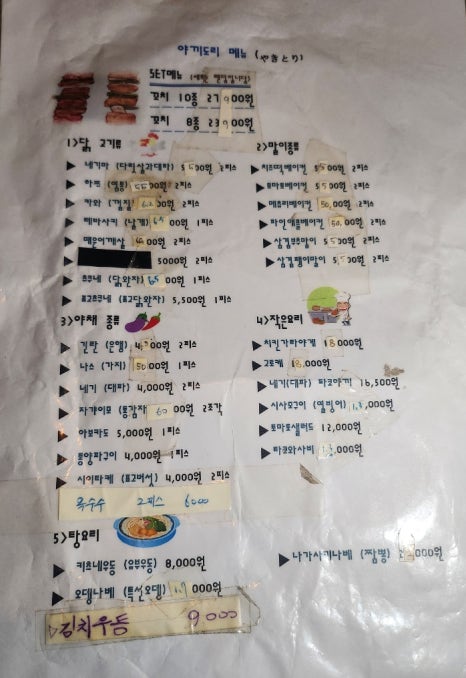 야끼도리 메뉴 (やきとり)
SET메뉴
꼬치 10종 27,000원
꼬치 8종 23,000원
1)닭 고기류
▶ 네기마 (다릿살과대파) 5,500원 2피스
▶ 하쯔 (염통) 5500원 2피스
▶ 카와 (껍질) 00원 2피스
▶ 테바사키 (날개) 6500원 1피스
▶ 매운어깨살 00원 2피스
▶ 5000원 2피스
▶ 츠쿠네 (닭완자) 6500원 1피스
▶ 표고츠쿠네 (표고닭완자) 5,500원 1피스
2)말이종류
▶ 치즈떡베이컨 5,500원 2피스
▶ 토마토베이컨 5,500원 2피스
▶ 메추리베이컨 2피스
▶ 파인애플베이컨 2피스
▶ 삼겹부추말이 5,500원 2피스
▶ 삼겹팽이말이 5,500원 2피스
3)야채 종류
▶ 긴난 (은행) 2피스
▶ 나스 (가지) 1피스
▶ 네기 (대파) 4,000원 2피스
▶ 자가이모 (통감자) 6000원 2조각
▶ 아보카도 5,000원 1피스
▶ 통양파구이 4,000원 1피스
▶ 시이타케 (표고버섯) 4,000원 2피스
옥수수 2피스 6000
4)작은요리
▶ 치킨가라아게 18000원
▶ 고로케 18,000원
▶ 네기(대파) 타코야끼 16,500원
▶ 시사모구이 (열빙어) ,000원
▶ 토마토샐러드 12,000원
▶ 타코와사비 ,000원
5)탕요리
▶ 키츠네우동 (유부우동) 8,000원
▶ 오뎅나베 (특선오뎅) 000원
▷김치우동 9000
▶ 나가사키나베 (짬뽕) 000원